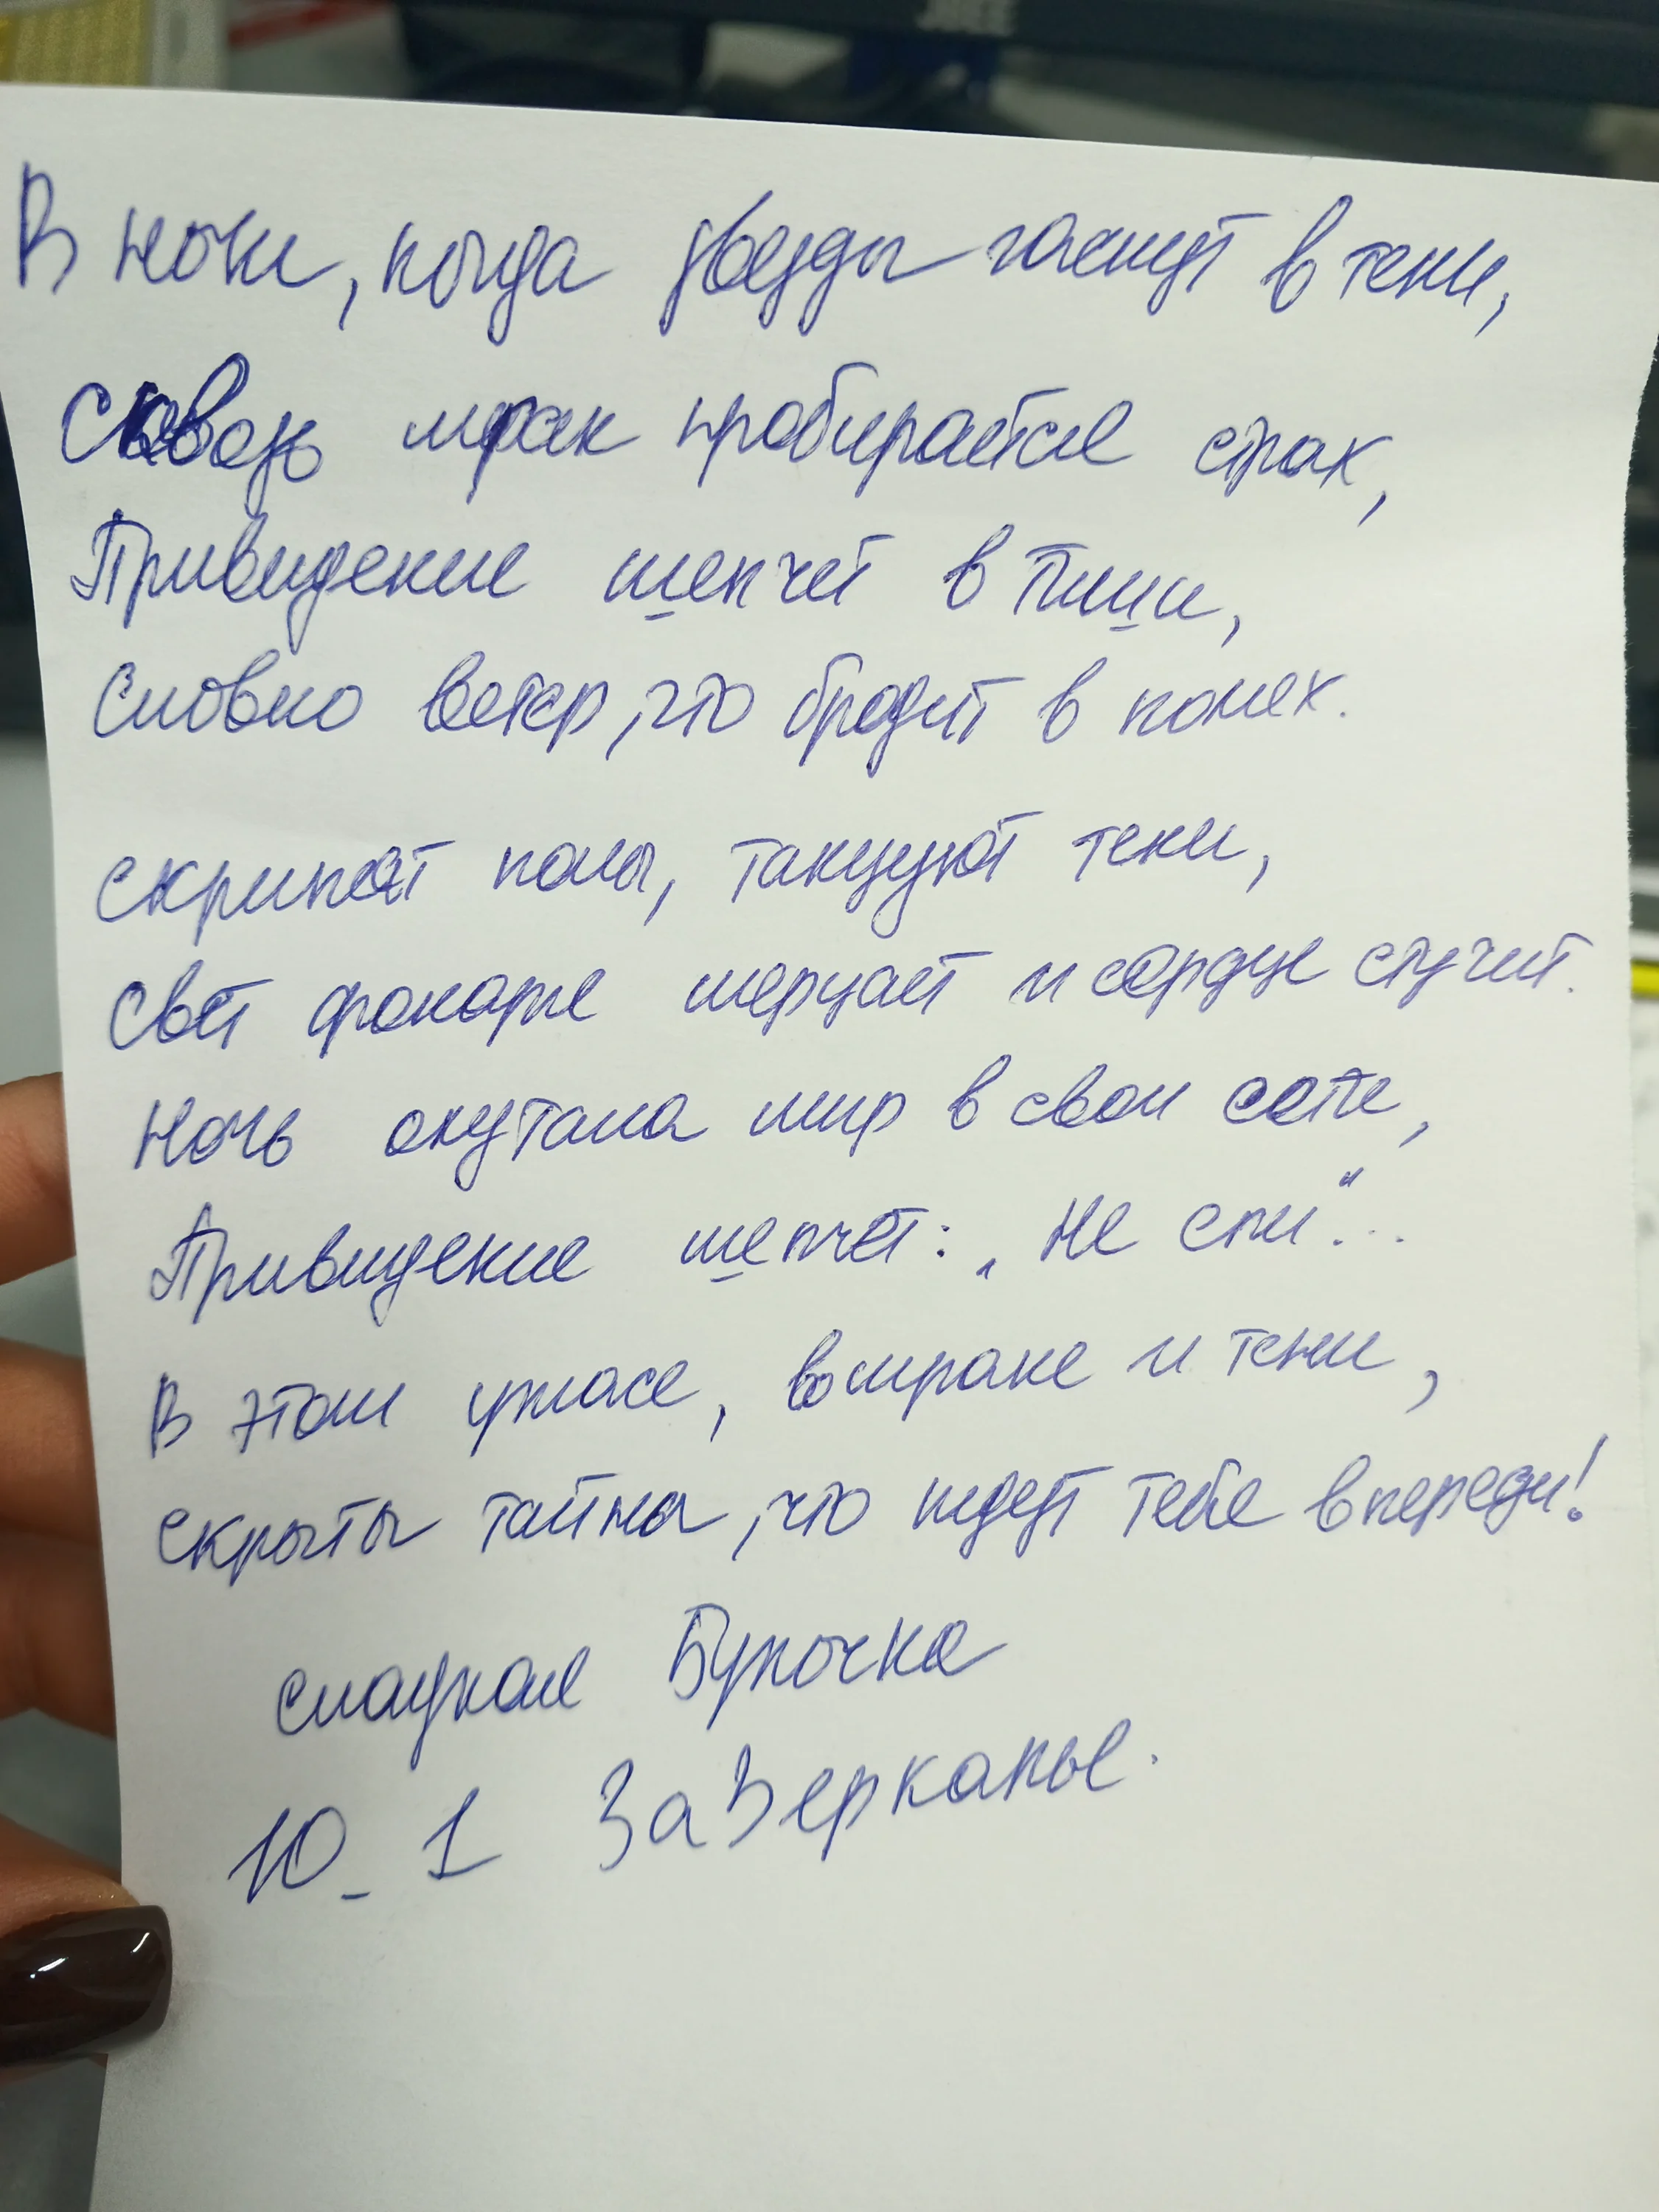 В ночи, когда звезды гаснут в тени,
Сквозь мрак пробирается страх,
Привидение шепчет в тиши,
Словно ветер, что бродит в полях.
Скрипят полы, танцуют тени,
Свет фонаря мерцает и сердце стучит.
Ночь окутала мир в свои сети,
Привидение шепчет: „Не спи“...
В этом ужасе, во мраке и тени,
Скрыты тайны, что ждут тебя впереди!
Сладкая Булочка
10_1 ЗаЗеркалье.